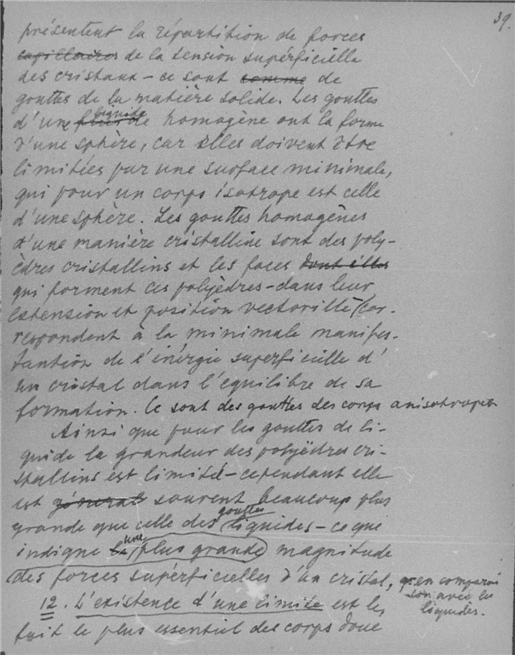 39.
présentent la répartition de forces
capillaires de la tension supérficielle
des cristaux – ce sont comme de
gouttes de la matière solide. Les gouttes
d'une liquide homogène ont la forme
d'une sphère, car elles doivent être
limitées par une surface minimale,
qui pour un corps isotrope est celle
d'une sphère. Les gouttes homogènes
d'une manière cristalline sont des poly-
èdres cristallins et les faces dont elles
qui forment ces polyèdres – dans leur
extension et position vectorielle (cor-
respondent à la minimale manifes-
tantion de l'énérgie superficielle d'
un cristal dans l'equilibre de sa
formation. Ce sont des gouttes des corps anisotropes
Ainsi que pour les gouttes de li-
quide la grandeur des polyèdres cri-
stallins est limitée – cependant elle
est général souvent beaucoup plus
grande que celle des gouttes liquides – ce que
indique la une plus grande magnitude
des forces supérficielles d'un cristal, en comparai
son avec les
liquides.
12. L'existence d'une limite est le
fait le plus essentiel des corps dont